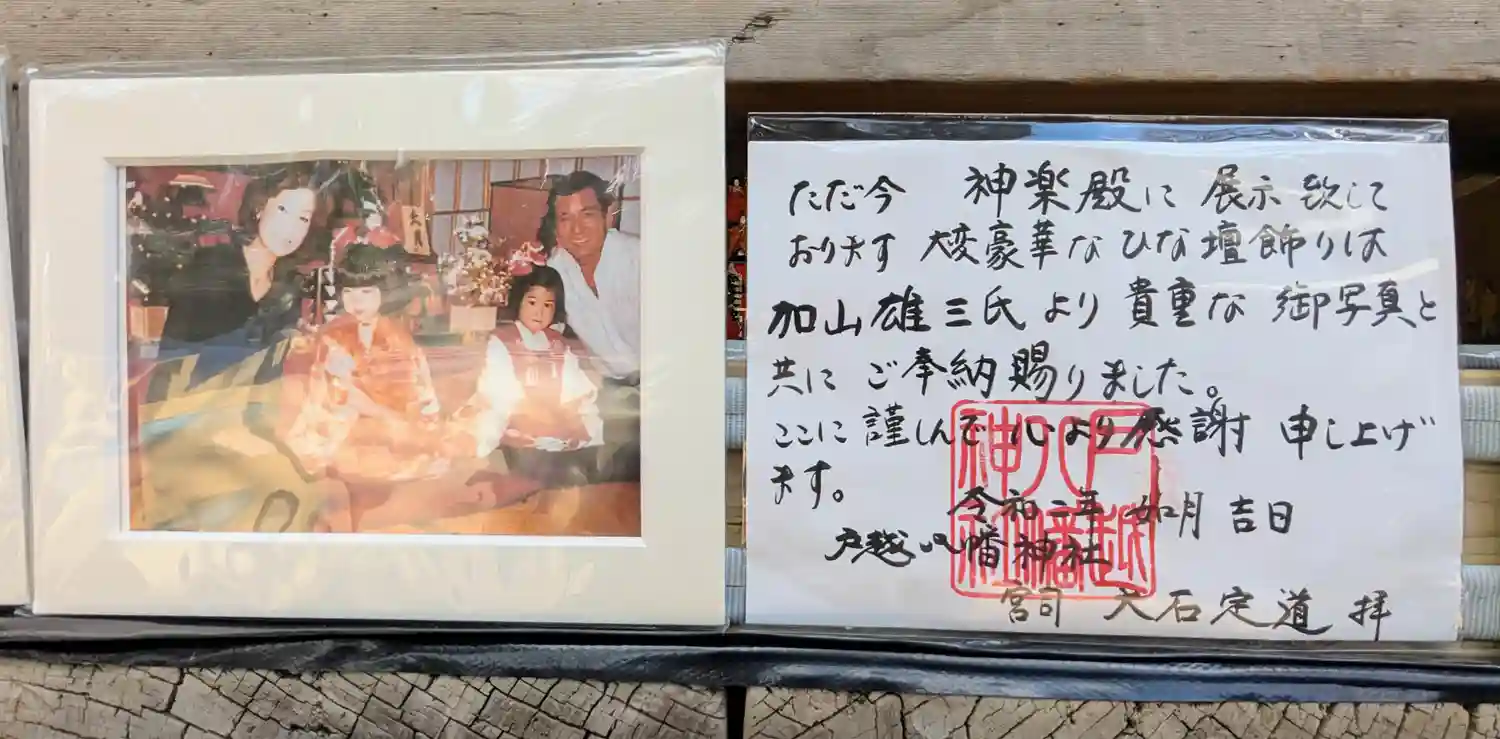 ただ今 神楽殿に 展示 致して
おります 大変豪華な ひな壇飾りは
加山雄三氏より 貴重な 御写真と
共に ご奉納賜りました。
ここに 謹しんで 心より感謝 申し上げ
ます。
令和二年 如月 吉日
戸越八幡神社
宮司 大石定道 拝
戸越
八幡
神社